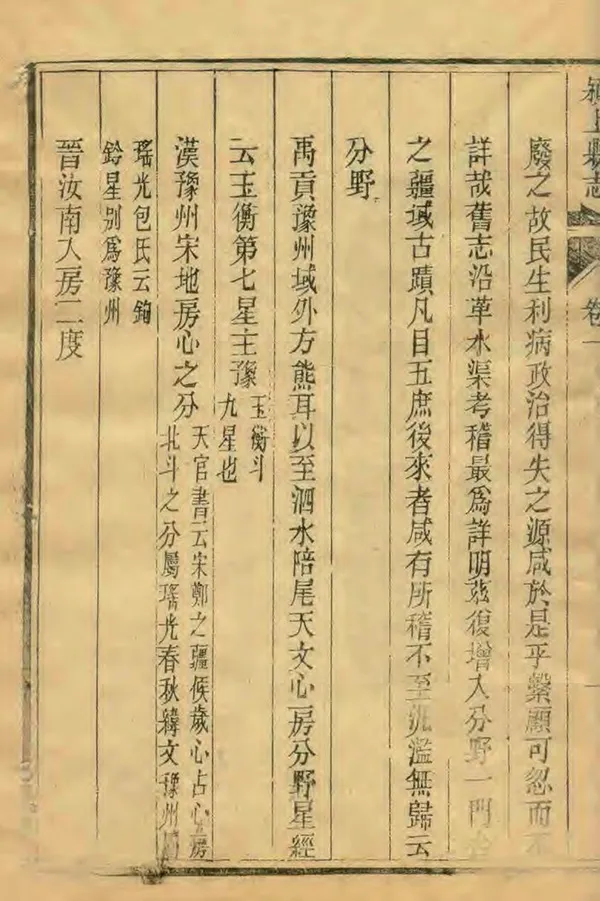 潁上縣志
卷一
廢之故民生利病政治得失之源咸於是乎繫顧可忽而不
詳哉舊志沿革水渠考稽最為詳明茲復增入分野一門
之疆域古蹟凡目五庶後來者咸有所稽不至汎濫無歸云
分野
禹貢豫州域外方熊耳以至泗水陪尾天文心房分野星經
云玉衡第七星主豫
玉衡斗
九星也
漢豫州宋地房心之分
天官書云宋鄭之疆候歲心占心房
北斗之分屬瑤光春秋緯文豫州
瑤光包氏云鉤
鈐星別為豫州
晉汝南入房二度